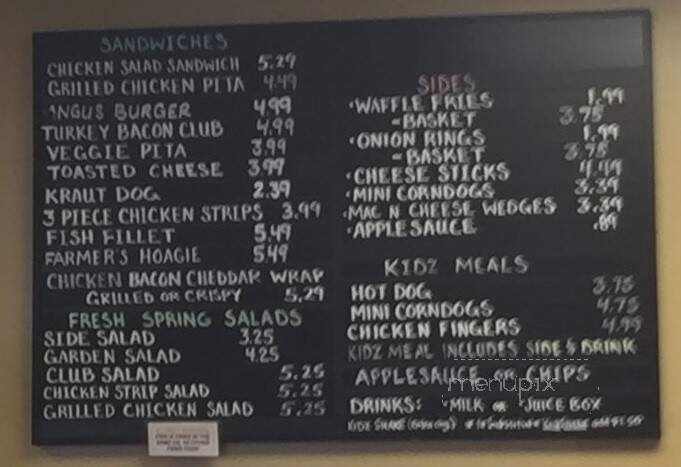 SANDWICHES
CHICKEN SALAD SANDWICH 5.29
GRILLED CHICKEN PITA 4.49
ANGUS BURGER 4.99
TURKEY BACON CLUB 4.99
VEGGIE PITA 3.99
TOASTED CHEESE 3.99
KRAUT DOG 2.39
3 PIECE CHICKEN STRIPS 3.99
FISH FILLET 5.49
FARMER'S HOAGIE 5.49
CHICKEN BACON CHEDDAR WRAP
GRILLED OR CRISPY 5.29
FRESH SPRING SALADS
SIDE SALAD 3.25
GARDEN SALAD 4.25
CLUB SALAD 5.25
CHICKEN STRIP SALAD 5.25
GRILLED CHICKEN SALAD 5.25
SIDES
•WAFFLE FRIES 1.99
-BASKET 3.75
•ONION RINGS 1.99
-BASKET 3.75
•CHEESE STICKS 4.49
•MINI CORNDOGS 3.39
•MAC N CHEESE WEDGES 3.39
•APPLESAUCE .89
KIDZ MEALS
HOT DOG 3.75
MINI CORNDOGS 4.75
CHICKEN FINGERS 4.99
KIDZ MEAL INCLUDES SIDE & DRINK
APPLESAUCE OR CHIPS
menupix
DRINKS: •MILK OR •JUICE BOX